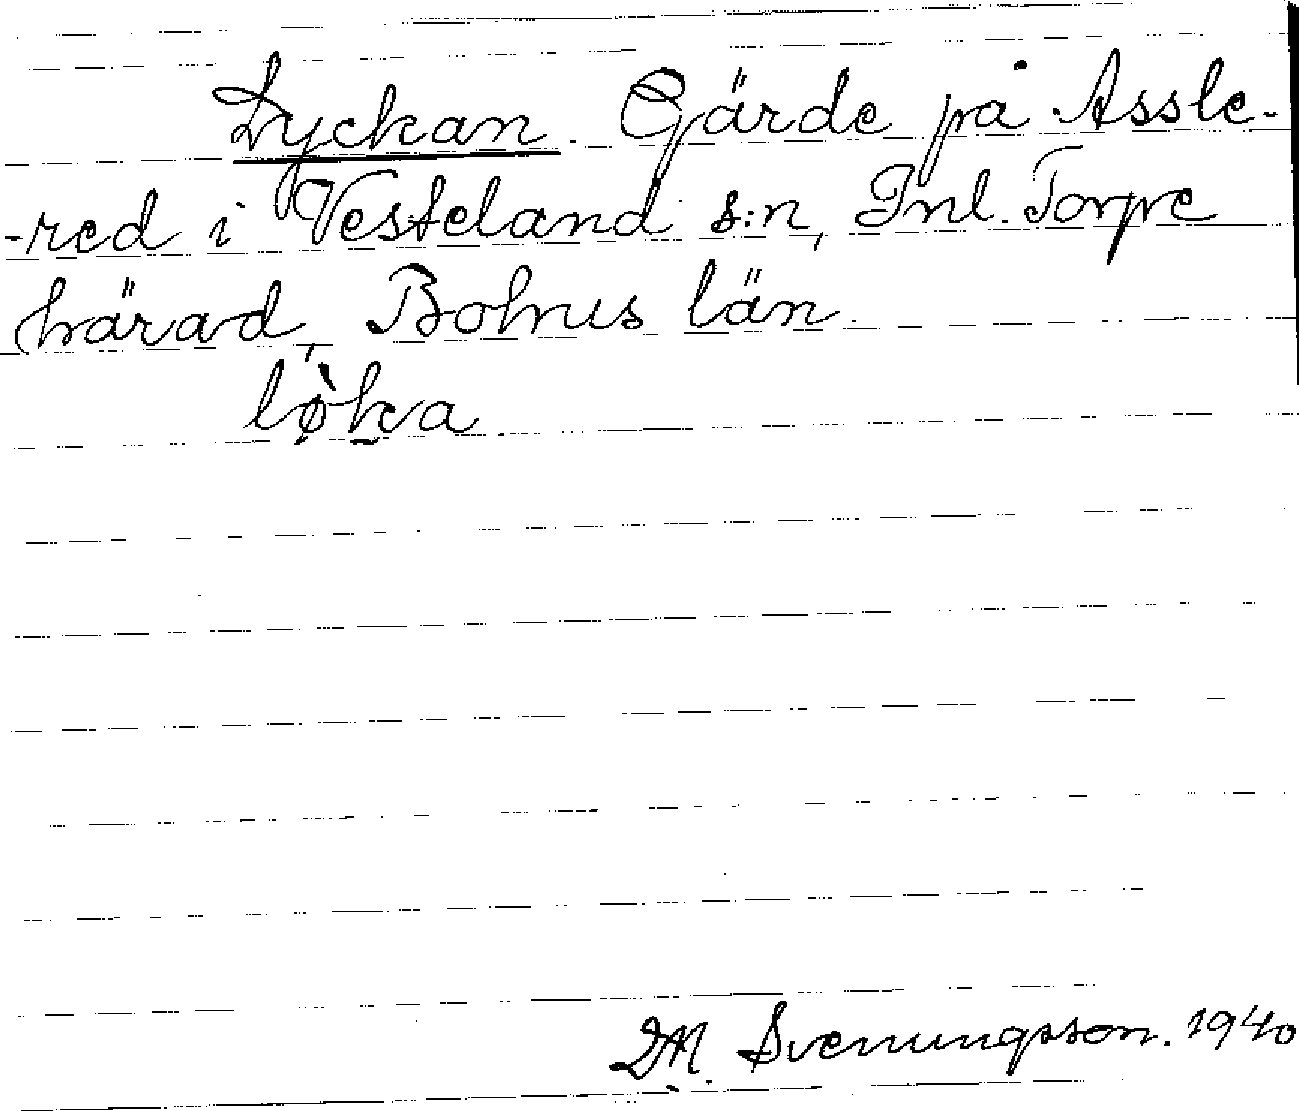 Lyckan. Gärde på Assle-
-red i Vesteland s:n, Inl. Torpe
härad, Bohus län.
lø̀ka
Svenungsson. 1940